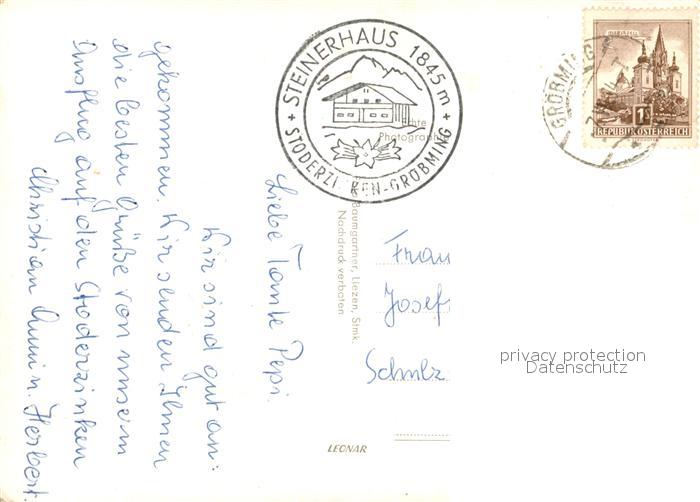 Liebe Tante Pepi.
Wir sind gut an:
gekommen. Wir senden Ihnen
die besten Grüße von unserm
Ausflug auf den Stoderzinken
Christian Anni u. Herbert
+ STEINERHAUS 1845 m +
STODERZI KEN-GRÖBMING
chte
Photograph
Baumgartner, Liezen, Stmk.
Nachdruck verboten
LEONAR
Frau
Josef
Schulz
GRÖBMING
MARIAZELL
1S
REPUBLIK ÖSTERREICH
privacy protection
Datenschutz